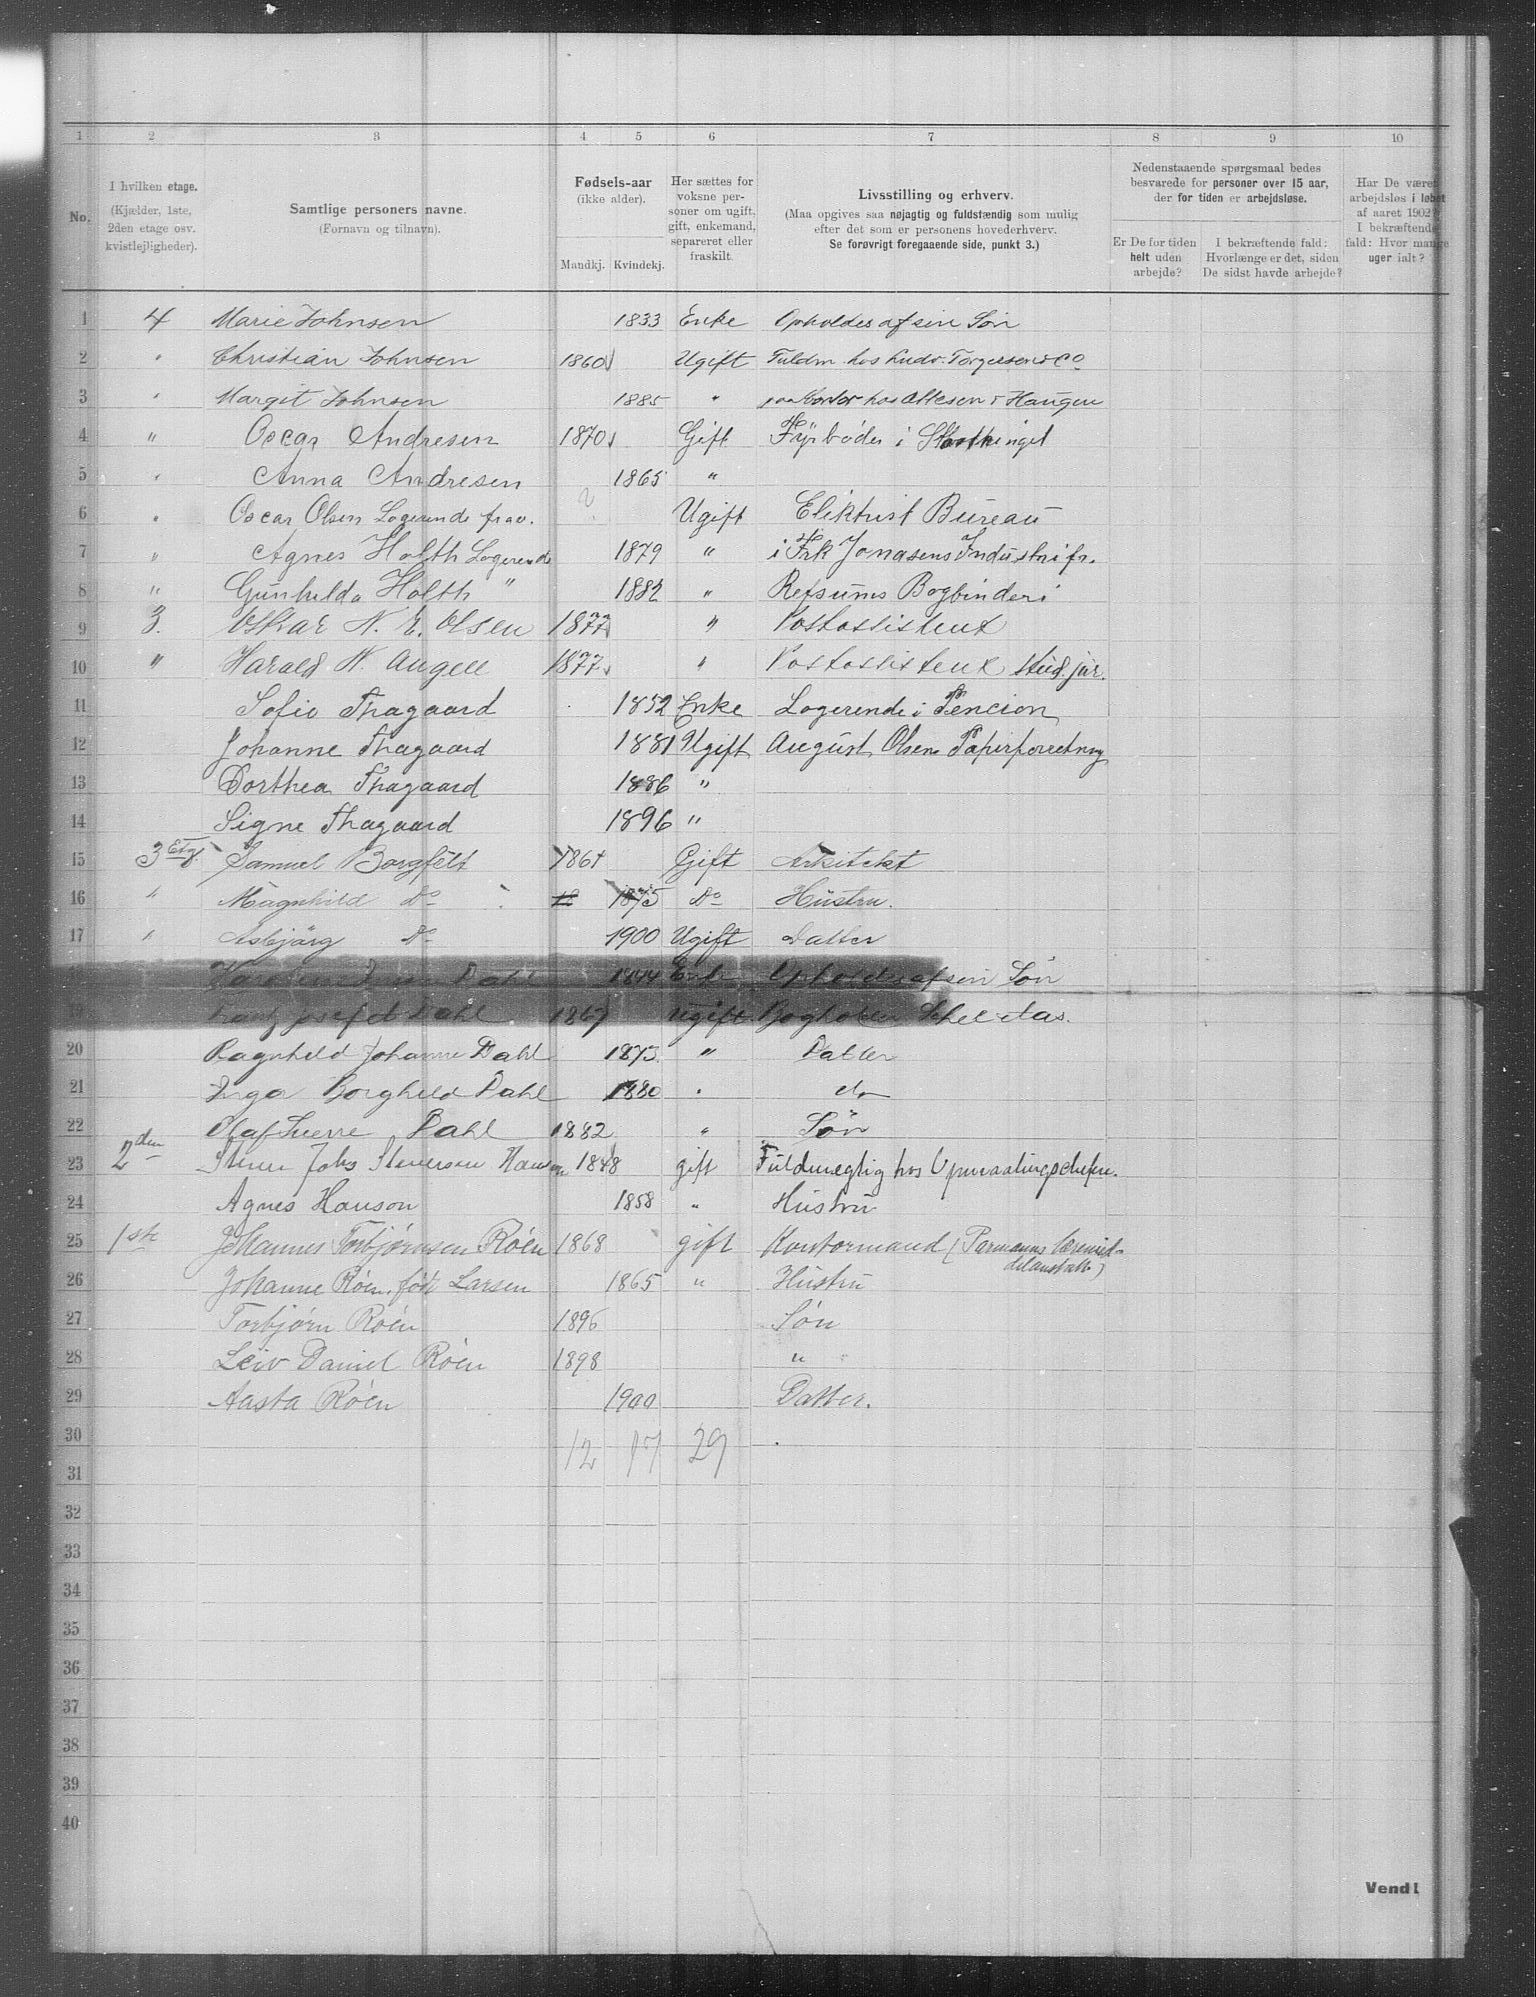 1 2 3 4 5 6 7 8 9 10
No.
I hvilken etage.
(Kjælder, 1ste,
2den etage osv.
kvistlejligheder).
Samtlige personers navne.
(Fornavn og tilnavn).
Fødsels-aar
(ikke alder).
Mandkj. Kvindekj.
Her sættes for
voksne per-
soner om ugift,
gift, enkemand,
separeret eller
fraskilt.
Livsstilling og erhverv.
(Maa opgives saa nøjagtig og fuldstændig som mulig
efter det som er personens hovederhverv.
Se forøvrigt foregaaende side, punkt 3.)
Nedenstaaende spørgsmaal bedes
besvarede for personer over 15 aar,
der for tiden er arbejdsløse.
Er De for tiden
helt uden
arbejde?
I bekræftende fald:
Hvorlænge er det, siden
De sidst havde arbejde?
Har De været
arbejdsløs i løbet
af aaret 1902?
I bekræftende
fald: Hvor mange
uger ialt?
1 4 Marie Johnsen 1833 Enke Opholdes af sin Søn
2 " Christian Johnsen 1860 Ugift Fuldm. hos Ludv. Torgersen & Co
3 " Margit Johnsen 1885 " paa Kontor hos Ottesen & Haugen
4 " Oscar Andresen 1870 Gift Fyrbøder i Storthinget
5 " Anna Andresen 1865 "
6 " Oscar Olsen Logerende frav. ? Ugift Elektrist Bureau
7 " Agnes Holth Logerende 1879 " i Frk Jonasens Industrifr.
8 " Gunhilda Holth " 1882 " Refsums Bogbinderi
9 3. Oskar N. E. Olsen 1877 " Postassistent
10 " Harald N. Angell 1877 " Postassistent stud. jur.
11 Sofie Thagaard 1852 Enke Logerende i Pencion
12 Johanne Thagaard 1881 Ugift August Olsens Papirforretning
13 Dorthea Thagaard 1886 "
14 Signe Thagaard 1896 "
15 3 Etg. Samuel Borgfelt 1861 Gift Arkitekt
16 " Magnhild Do 18 1875 Do Hustru.
17 " Asbjørg Do 1900 Ugift Datter
18 Dahl 1844 Enke Opholdes af sin Søn
19 Dahl 1867 Ugift Bogholder
20 Ragnhild Johanne Dahl 1875 " Datter
21 Inga Borghild Dahl 1880 " do
22 Olaf Sverre Dahl 1882 " Søn
23 2den Johs Hansen 1848 gift Fuldmægtig hos Opmaalingschefen.
24 Agnes Hanson 1858 " Hustru
25 1ste Johannes Torbjørnsen Röen 1868 gift Kontormand (Parmanns læremid-
delanstalt)
26 Johanne Röen, født Larsen 1865 " Hustru
27 Torbjørn Röen 1896 Søn
28 Leiv Daniel Röen 1898 "
29 Aasta Röen 1900 Datter.
30
12 17 29
31
32
33
34
35
36
37
38
39
40
Vend!